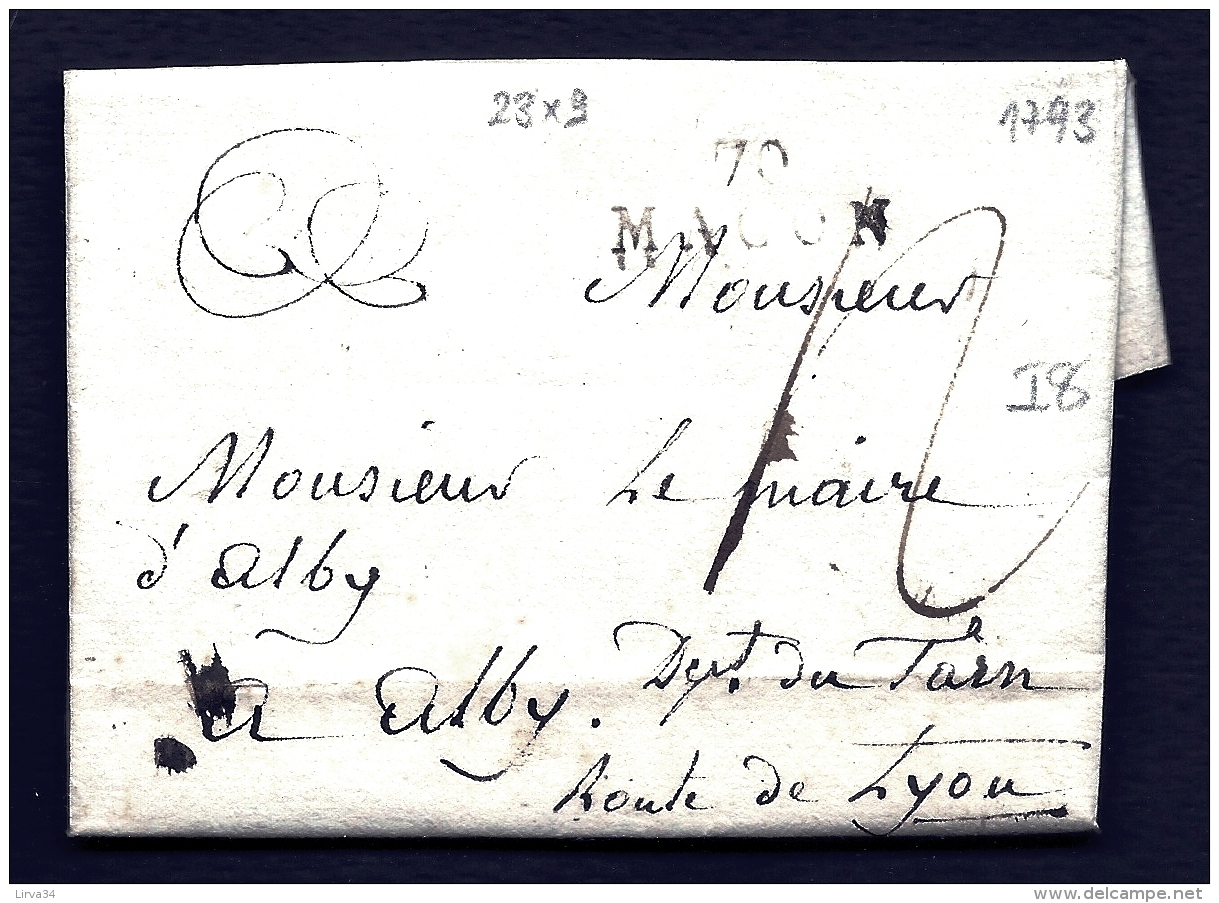 23 x 9
1793
70
MACON
Monsieur
12
I8
Monsieur Le maire
d'alby
a alby. Dept. du Tarn
Route de Lyon
Lirva34
www.delcampe.net